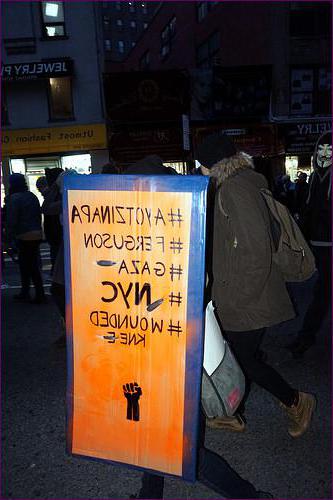 JEWELRY
Utmost Fashion.
#AYOTZINAPA
#FERGUSON
#GAZA
#NYC
#WOUNDED
KNEE